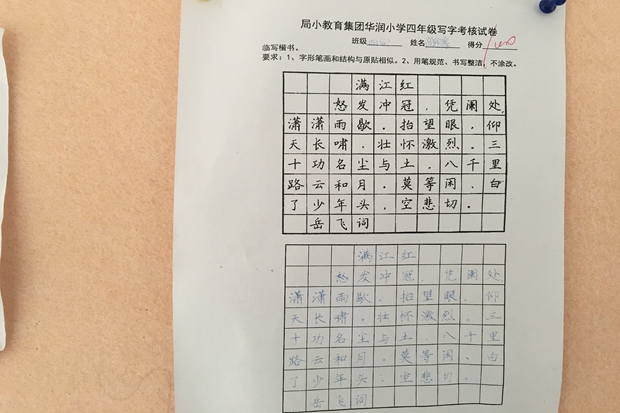 局小教育集团华润小学四年级写字考核试卷
班级 姓名 得分 100
临写楷书。
要求：1、字形笔画和结构与原贴相似。2、用笔规范、书写整洁，不涂改。
满江红
怒发冲冠．凭阑处
潇潇雨歇．抬望眼．仰
天长啸．壮怀激烈．三
十功名尘与土．八千里
路云和月．莫等闲．白
了少年头．空悲切．
岳飞词
满江红
怒发冲冠．凭阑处
潇潇雨歇．抬望眼．仰
天长啸．壮怀激烈．三
十功名尘与土．八千里
路云和月．莫等闲．白
了少年头．空悲切．
岳飞词